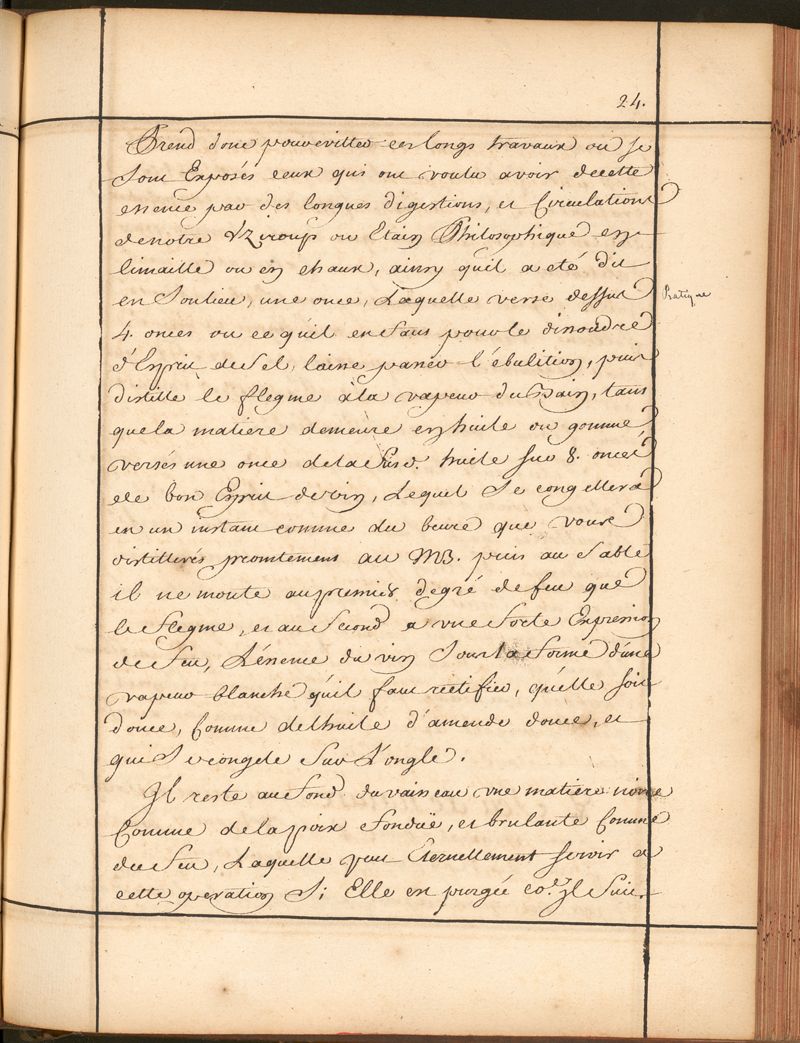 24.
Prend donc pour eviter ces longs travaux ou se
sont Exposés ceux qui ont voulu avoir de cette
essence par des longues digestions, et Circulations
de notre ou Etain Philosophique en
limaille ou en chaux, ainsy qu'il a eté dit
en son lieu, une once, Laquelle verse dessus
Pratique
4. onces ou ce qu'il en faut pour le dissoudre
d'Esprit de Sel, laisse passer l'ébulition, puis
distille le flegme à la vapeur du Bain, tant
que la matiere demeure en huile ou gomme
versés une once de la susd. huile sur 8. onces
de bon Esprit de vin, Lequel se congellera
en un instant comme du beure que vous
distillerés promtement au MB. puis au Sable
il ne monte au premier degré de feu que
le flegme, et au Second a une forte Expression
de feu, L'éssence du vin Sous la forme d'une
vapeur blanche qu'il faut rectifier, qu'elle soit
douce, Comme de lhuile d'amende douce, et
qui se congele sur L'ongle.
Il reste au fond du vaisseau une matière noire
Comme de la poix fonduë, et brulante Comme
du feu, Laquelle peut Eternellement servir a
cette operation Si Elle en purgée co.e il suit.